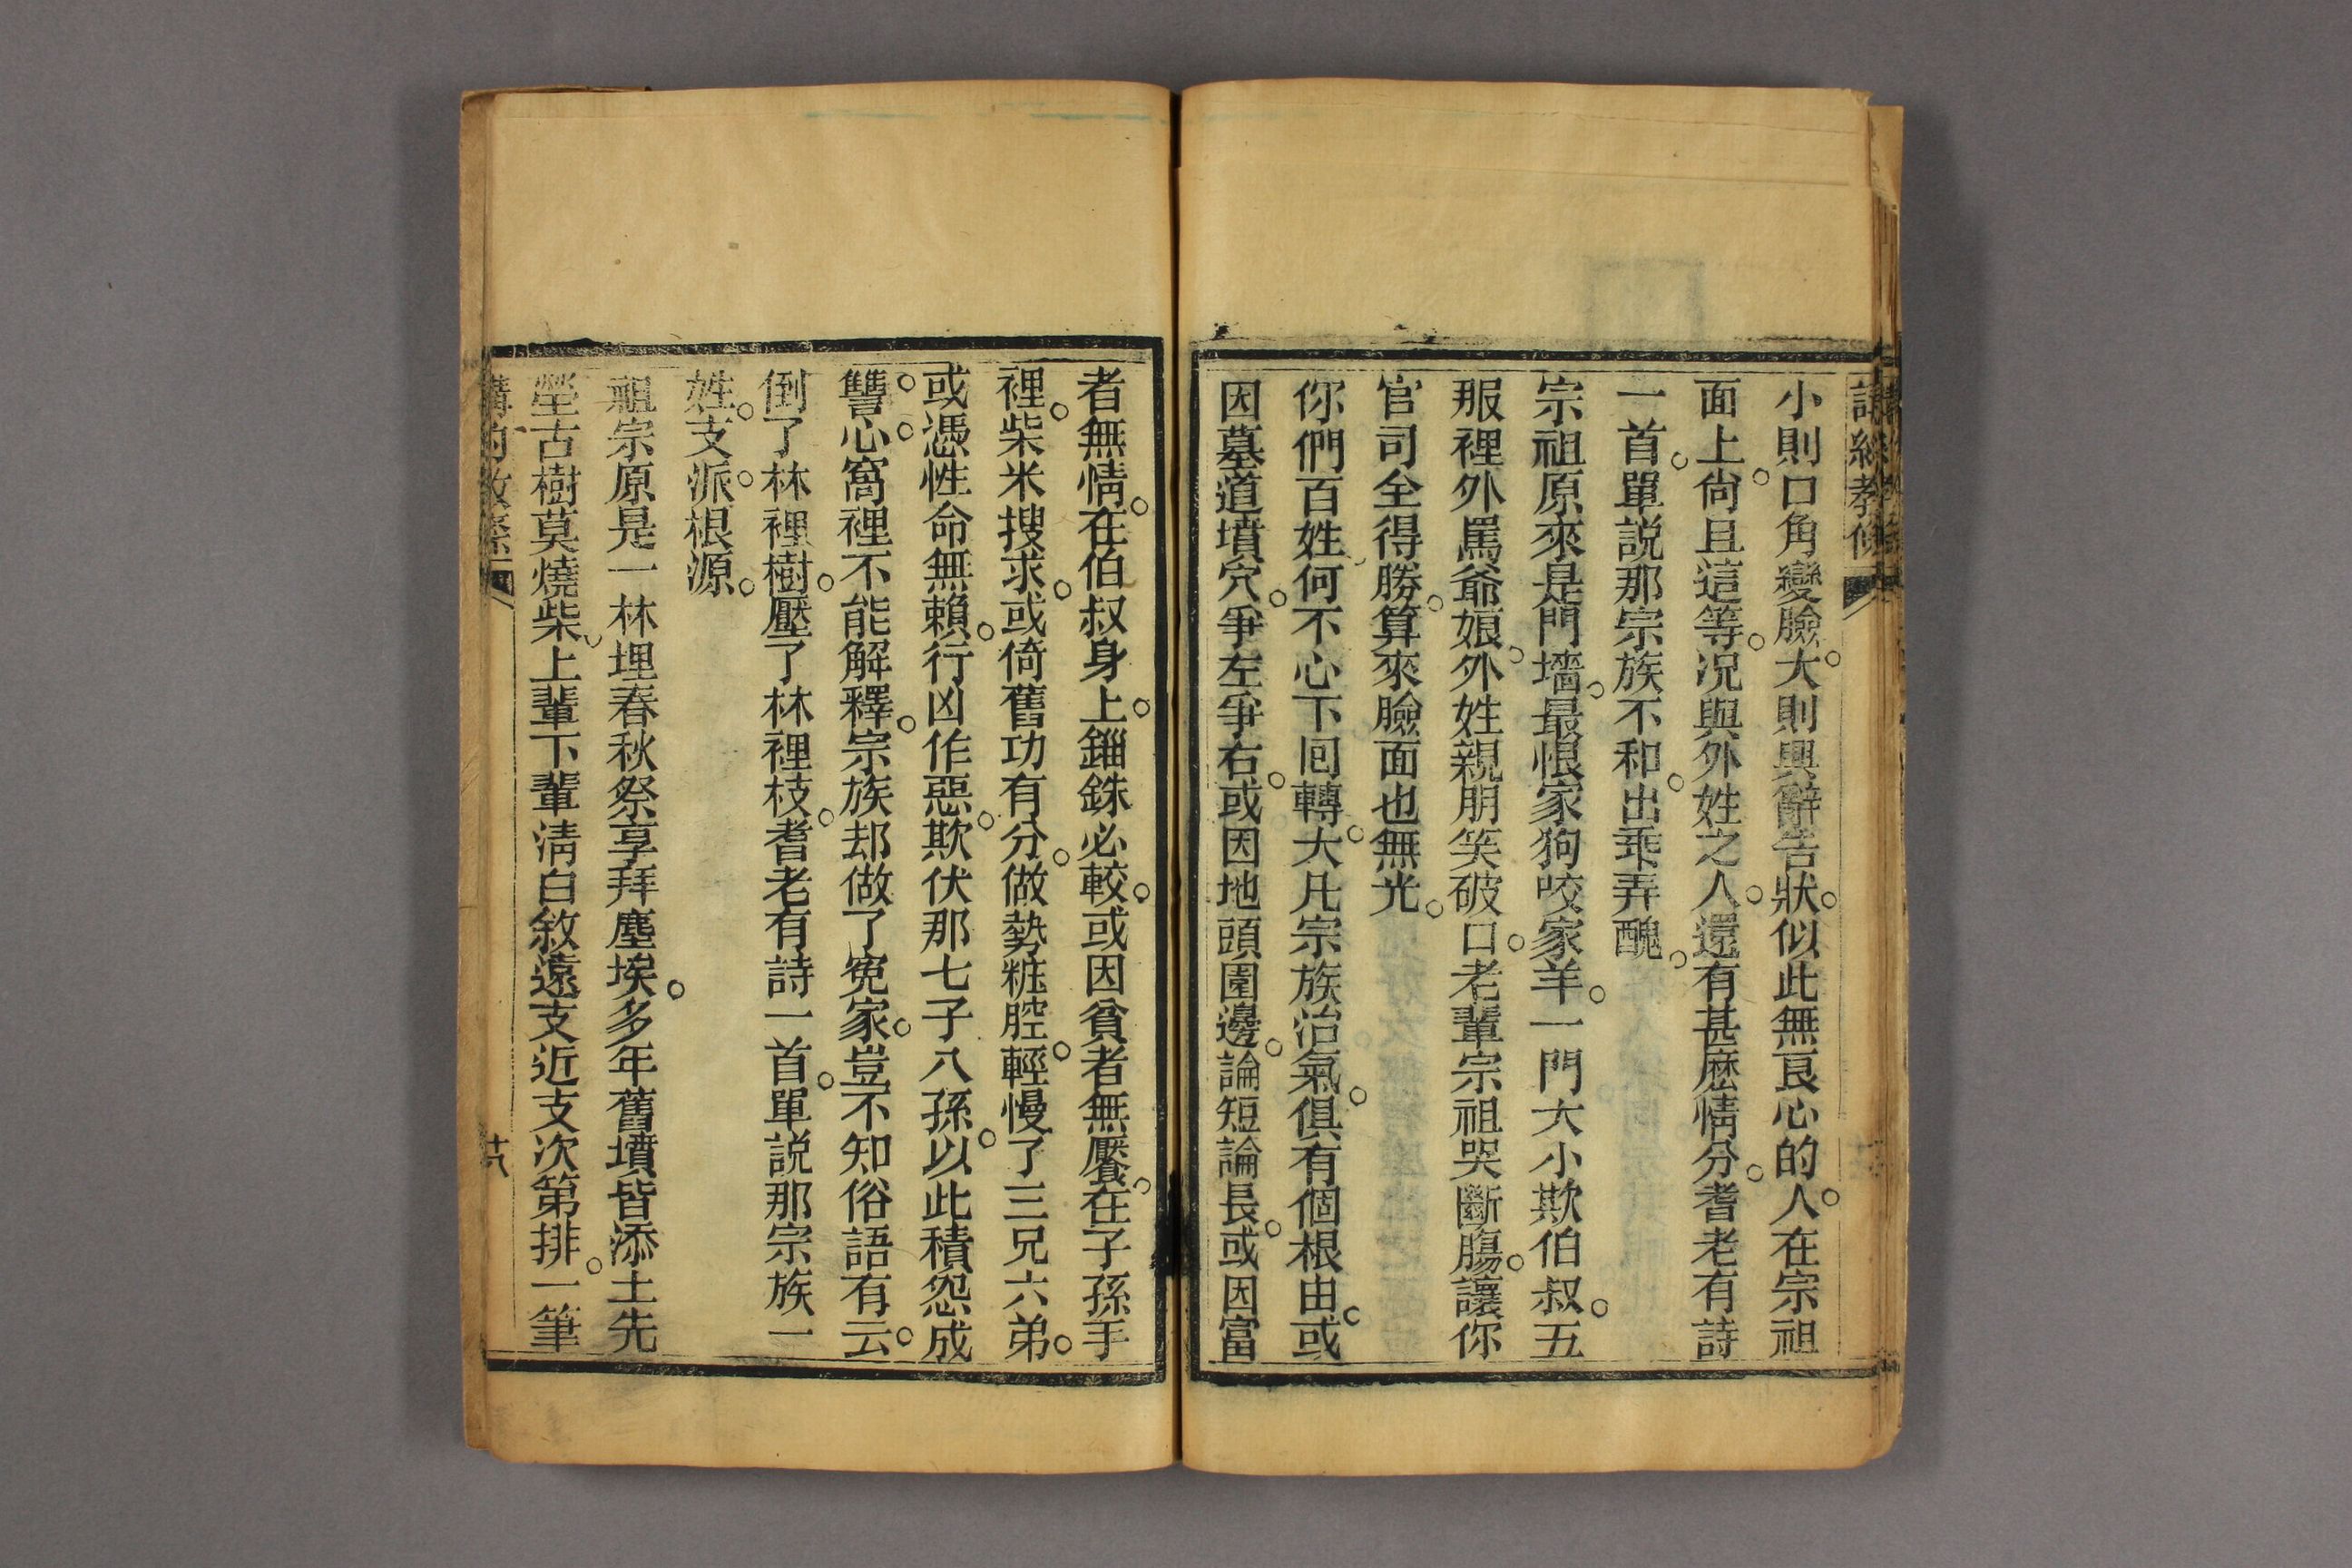 小則口角變臉。大則興辭告狀。似此無良心的人。在宗祖
面上。尙且這等。况與外姓之人。還有甚麽情分。耆老有詩
一首。單説那宗族不和。出乖弄醜。
宗祖原來是門墻。最恨家狗咬家羊。一門大小欺伯叔。五
服裡外罵爺娘。外姓親朋笑破口。老輩宗祖哭斷腸。讓你
官司全得勝。算來臉面也無光。
你們百姓何不心下囘轉。大凡宗族治氣。俱有個根由。或
因墓道墳穴。爭左爭右。或因地頭園邊。論短論長。或因富
者無情。在伯叔身上。錙銖必較。或因貧者無饜。在子孫手
裡。柴米搜求。或倚舊功有分。做勢粧腔。輕慢了三兄六弟。
或憑性命無賴。行凶作惡。欺伏那七子八孫。以此積怨成
讐。心。窩裡不能解釋。宗族却做了寃家。豈不知俗語有云。
倒了林裡樹。壓了林裡枝。耆老有詩一首。單説那宗族一
姓。支派。根源。
祖宗原是一林埋春秋祭享拜塵埃。多年舊墳皆添土先
塋古樹莫燒柴。上輩下輩淸白敘遠支近支次第排。一筆
十八